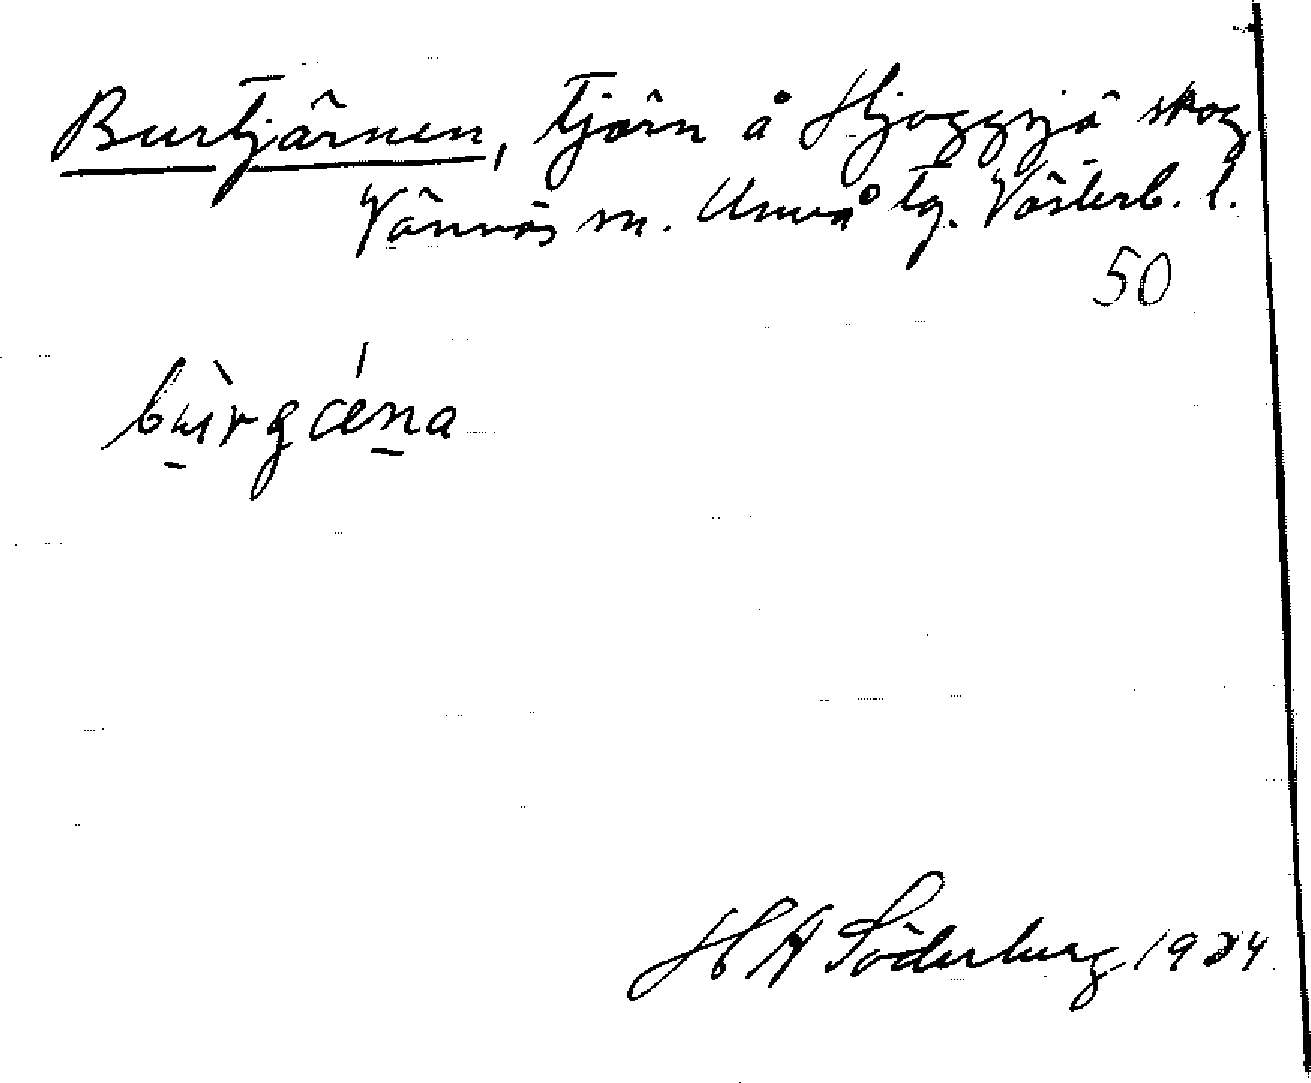 Burtjärnen, tjärn å Hjoggsjö skog
Vännäs sn. Umeå tg. Västerb. l.
50
bùrgǽna
HA Söderberg 1924